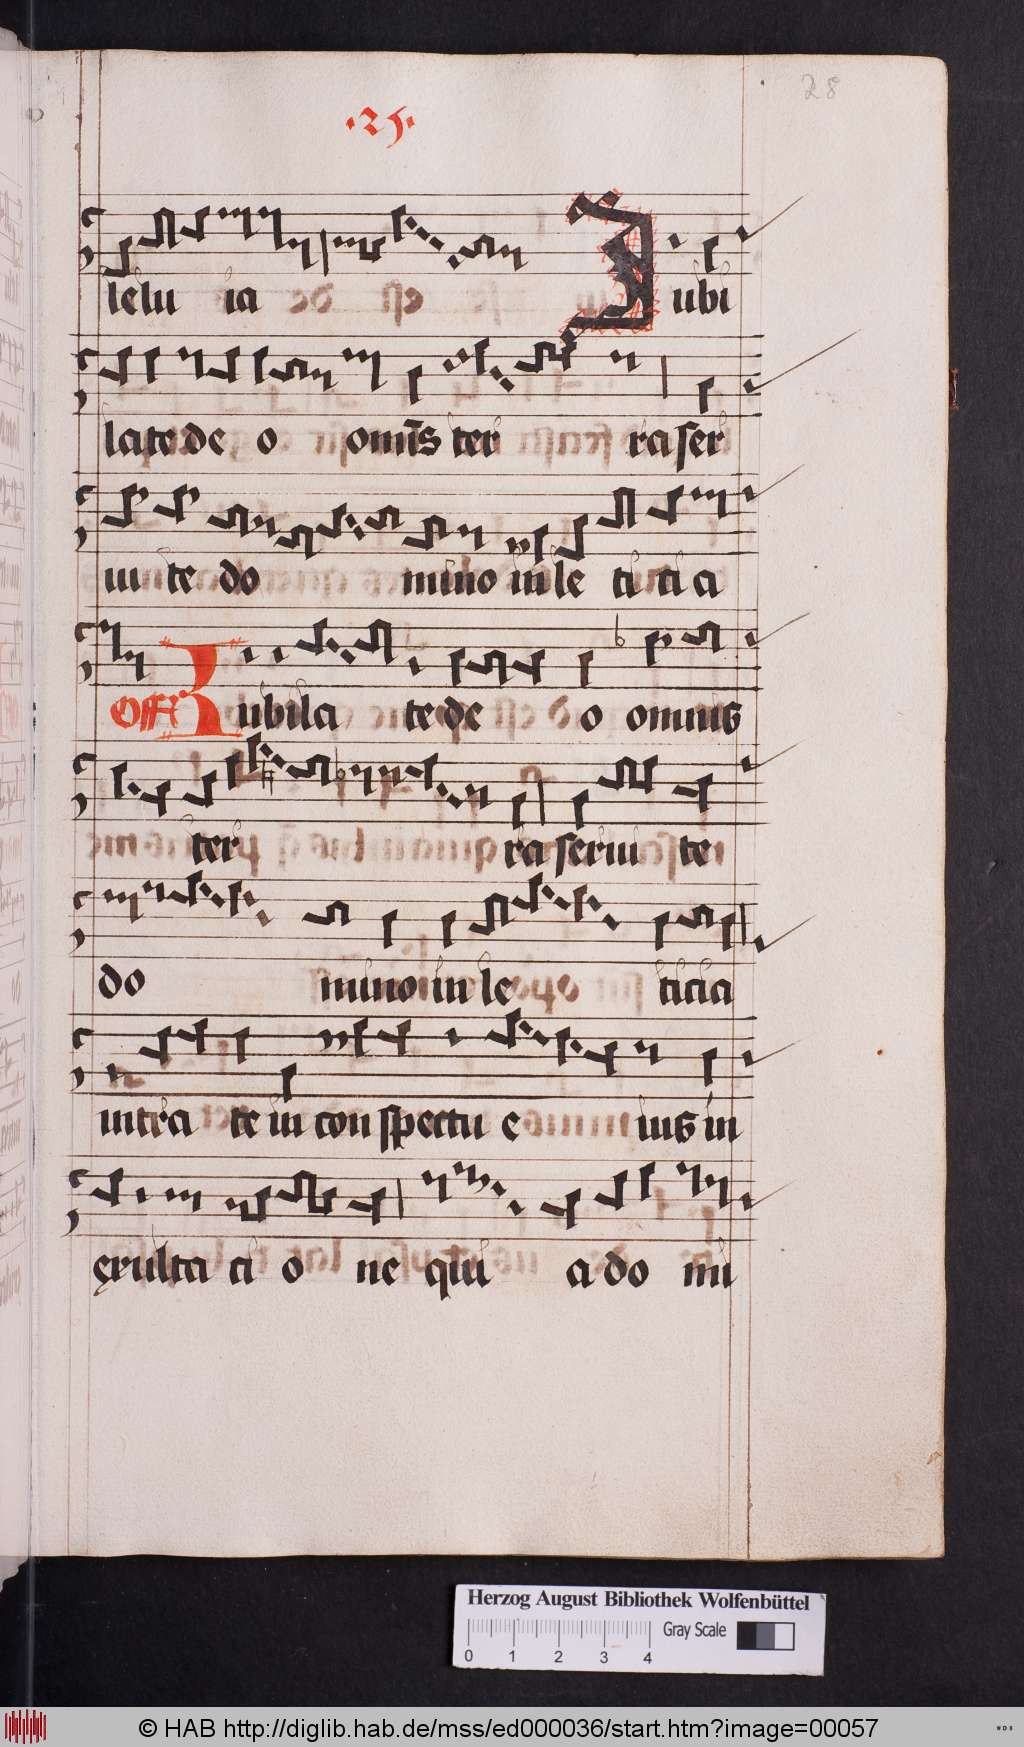 28
·25·
lelu ia Jubi
late de o omīs ter ra ser
uite do mino in le ticia
Off Jubila te de o omnis
ter ra serui te
do mino in le ticia
intra te in conspectu e ius in
exulta ti o ne qui a do mi
Herzog August Bibliothek Wolfenbüttel
Gray Scale
0 1 2 3 4
© HAB http://diglib.hab.de/mss/ed000036/start.htm?image=00057